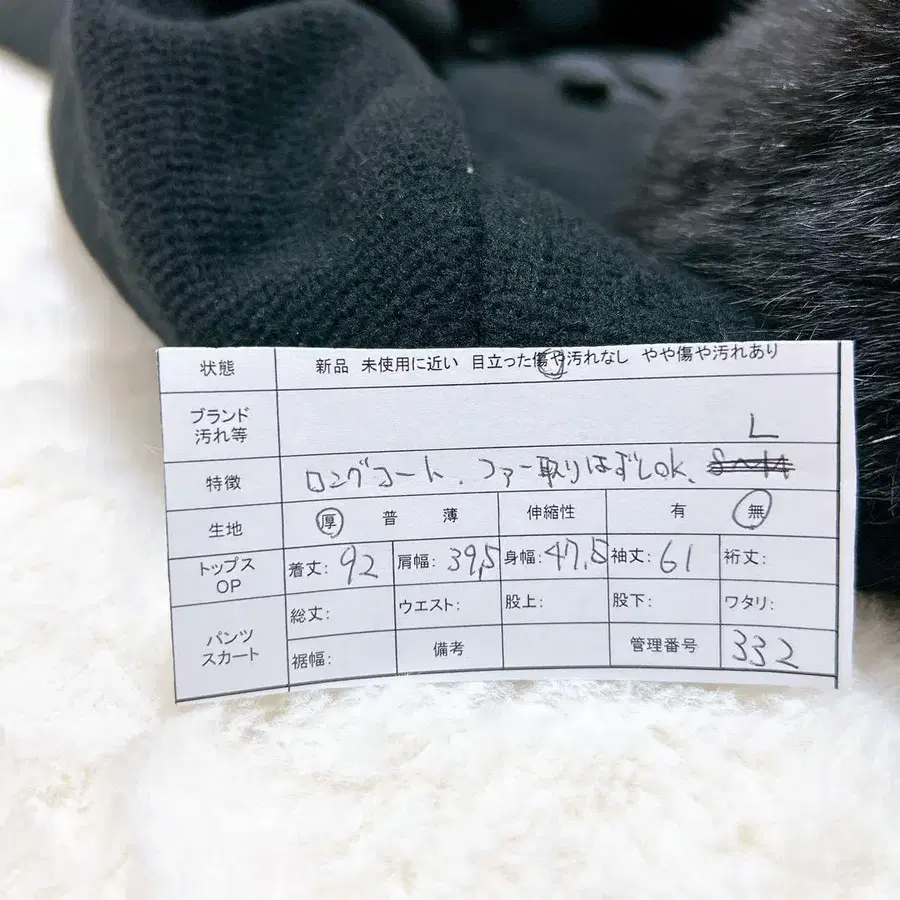 状態 新品 未使用に近い 目立った傷や汚れなし やや傷や汚れあり
ブランド
汚れ等
L
特徴 ロングコート、ファー取りはずしOK、
生地 厚 普 薄 伸縮性 有 無
トップス
OP
着丈:92 肩幅:39,5 身幅:47,5 袖丈:61 裄丈:
パンツ
スカート
総丈: ウエスト: 股上: 股下: ワタリ:
裾幅: 備考 管理番号 332